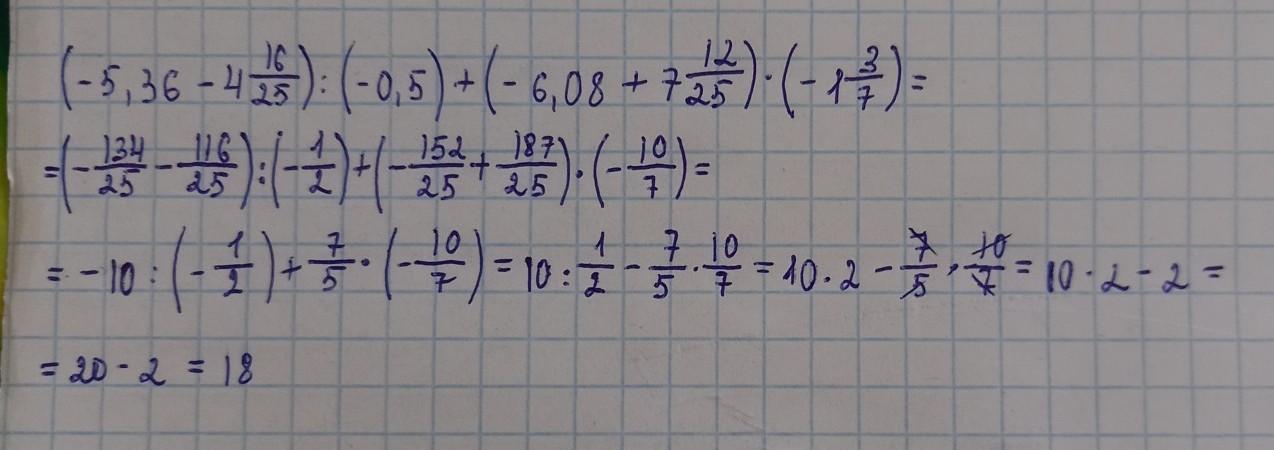 (-5,36 - 4 16/25) : (-0,5) + (-6,08 + 7 12/25) · (-1 3/7) =
= (-134/25 - 116/25) : (-1/2) + (-152/25 + 187/25) · (-10/7) =
= -10 : (-1/2) + 7/5 · (-10/7) = 10 : 1/2 - 7/5 · 10/7 = 10 · 2 - 7/5 · 10/7 = 10 · 2 - 2 =
= 20 - 2 = 18